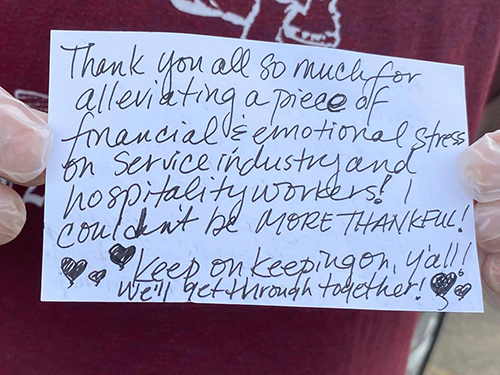 Thank you all so much for
alleviating a piece of
financial & emotional stress
on service industry and
hospitality workers! I
couldn't be MORE THANKFUL!
Keep on keeping on, y'all!
We'll get through together!